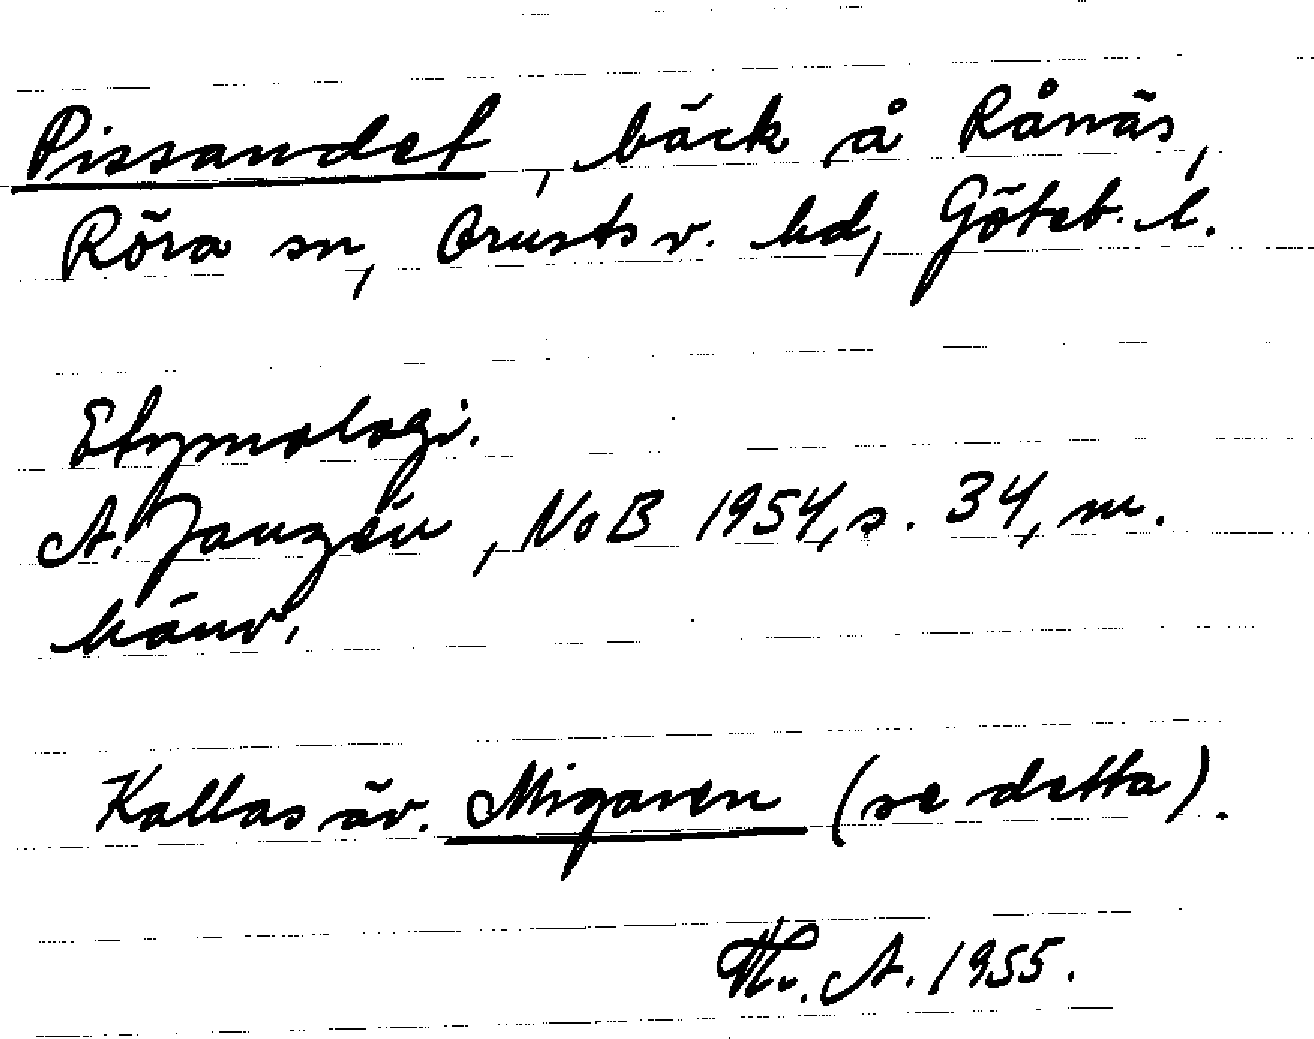 Pissandet, bäck å Rånäs,
Röra sn, Orusts v. hd, Göteb. l.
Etymologi.
A. Janzén, NoB 1954, s. 34, m.
hänv.
Kallas äv. Migaren (se detta).
Th. A. 1955.